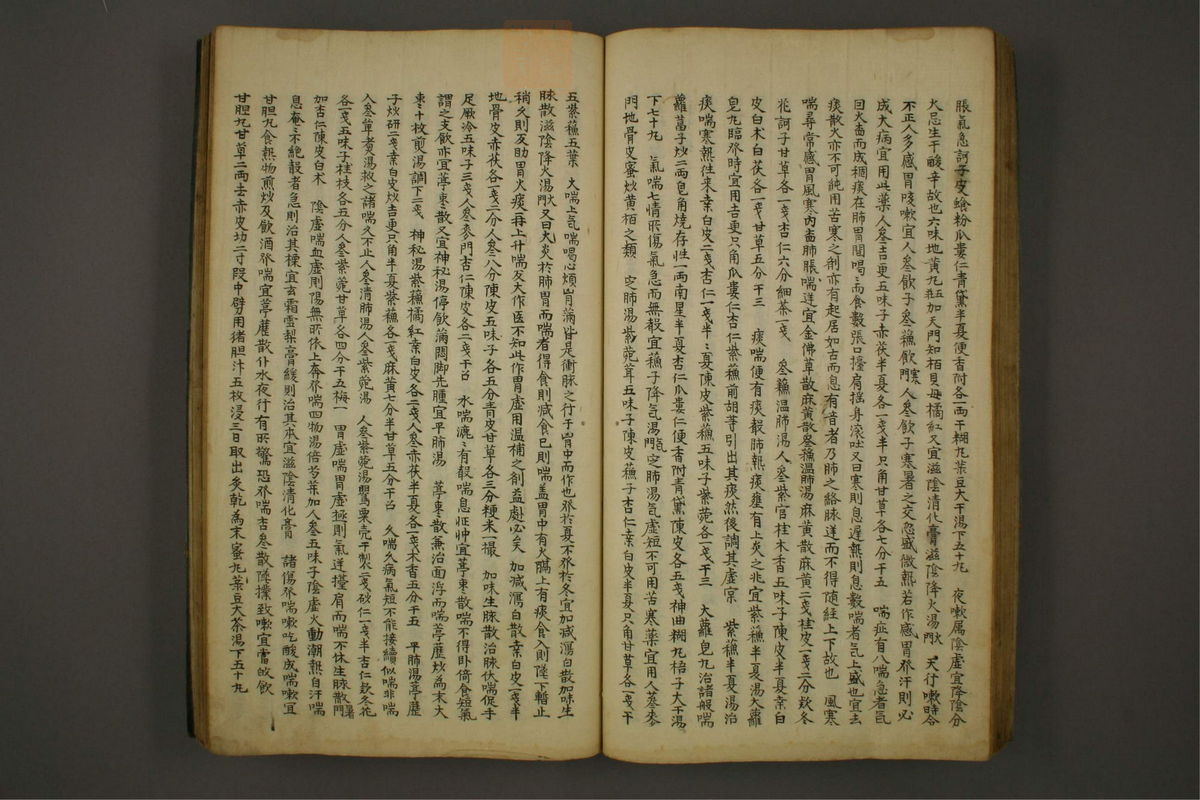 脹氣急訶子皮蛤粉瓜婁仁青黛半夏便香附各一兩干糊丸菉豆大干湯下五十丸 夜嗽属陰虛宜降陰分
大忌生干酸辛故也六味地黃丸加天門知栢貝母橘紅又宜滋陰清化膏滋陰降火湯 天行嗽時令
不正人多感冒咳嗽宜人參飲子參蘓飲 人參飲子寒暑之交忽盛微熱若作感冒發汗則必
成大病宜用此藥人參吉更五味子赤茯半夏各一戔半只角甘草各七分干五 喘症有八喘急者氣
因火盛而成稠痰在肺胃聞喝而食數張口擡肩揺身滚吐又曰寒則息遲熱則息數喘者氣上盛也宜去
痰散火亦不可純用苦寒之剤亦有起居如古而息有音者乃肺之絡脉逆而不得随経上下故也 風寒
喘尋常感冒風寒內畜肺脹喘逆宜金佛草散麻黃散參蘓温肺湯 麻黃散麻黃二戔桂皮一戔二分欵冬
花訶子甘草各一戔杏仁六分細茶一戔 參蘓温肺湯人參紫官桂木香五味子陳皮半夏桒白
皮白朮白茯各一戔甘草五分干三 痰喘便有痰聲肺熱痰壅有上炎之兆宜紫蘓半夏湯大蘿
皂丸臨發時宜用吉更只角瓜婁仁杏仁紫蘓前胡等引出其痰然後調其虛宲 紫蘓半夏湯治
痰喘寒熱往來桒白皮二戔杏仁一戔半夏陳皮紫蘓五味子紫菀各一戔干三 大蘿皂丸治諸般喘
蘿葍子炒二兩皂角焼存性一兩南星半夏杏仁瓜婁仁便香附青黛陳皮各五戔神曲糊丸梧子大干湯
下七十丸 氣喘七情所傷氣急而無聲宜蘓子降气湯 㝎肺湯气虛短不可用苦寒藥宜用人參麥
門地骨皮蜜炒黃栢之類 㝎肺湯紫菀茸五味子陳皮蘓子杏仁桒白皮半夏只角甘草各一戔干
五紫蘓五葉 火喘上气喘喝心煩胷滿皆是衝脉之行于胷中而作也發於夏不發於冬宜加减瀉白散加味生
脉散滋陰降火湯 又曰火炎於肺胃而喘者得食則减食已則喘盖胃中有火膈上有痰食入則墜下暫止
稍久則反助胃火痰再上升喘反大作医不知此作胃虛用温補之劑益劇必矣 加减瀉白散桒白皮一戔半
地骨皮赤茯各一戔二分人參八分陳皮五味子各五分青皮甘草各三分粳米一撮 加味生脉散治脉伏喘促手
足厥冷五味子三戔人參麥門杏仁陳皮各二戔干召 水喘漉有聲喘息怔忡宜葶枣散喘不得卧倚食短氣
謂之支飲亦宜葶枣散又宜神秘湯停飲滿悶脚先腫宜平肺湯 葶枣散兼治面浮而喘葶藶炒為末大
枣十枚煎湯調下二戔 神秘湯紫蘓橘紅桒白皮各二戔人參赤茯半夏各一戔木香五分干五 平肺湯葶藶
子炒研二戔桒白皮炒吉更只角半夏紫蘓各一戔麻黃七分半甘草五分干召 久喘久病氣短不能接續似喘非喘
人參單煮湯救之諸喘久不止人參清肺湯人參紫菀湯 人參紫菀湯罌粟売干製二戔砂仁一戔半杏仁欵冬花
各一戔五味子桂枝各五分人參紫菀甘草各四分干五梅一 胃虛喘胃虛極則氣逆擡肩而喘不休生脉散
加杏仁陳皮白朮 陰虛喘血虛則陽無所依上奔發喘四物湯倍芍藥加人參五味子陰虛火動潮熱自汗喘
息奄不絶聲者急則治其標宜玄霜雪梨膏緩則治其本宜滋陰清化膏 諸傷發喘嗽吃酸成喘嗽宜
甘胆丸食熱物煎炒及飲酒發喘宜葶藶散仆水夜行有所驚恐發喘杏參散墜撲致嗽宜當飲
甘胆丸甘草二兩去赤皮切二寸叚中劈用猪胆汁五枚浸三日取出炙乾為末蜜丸菉豆大茶湯下五十丸